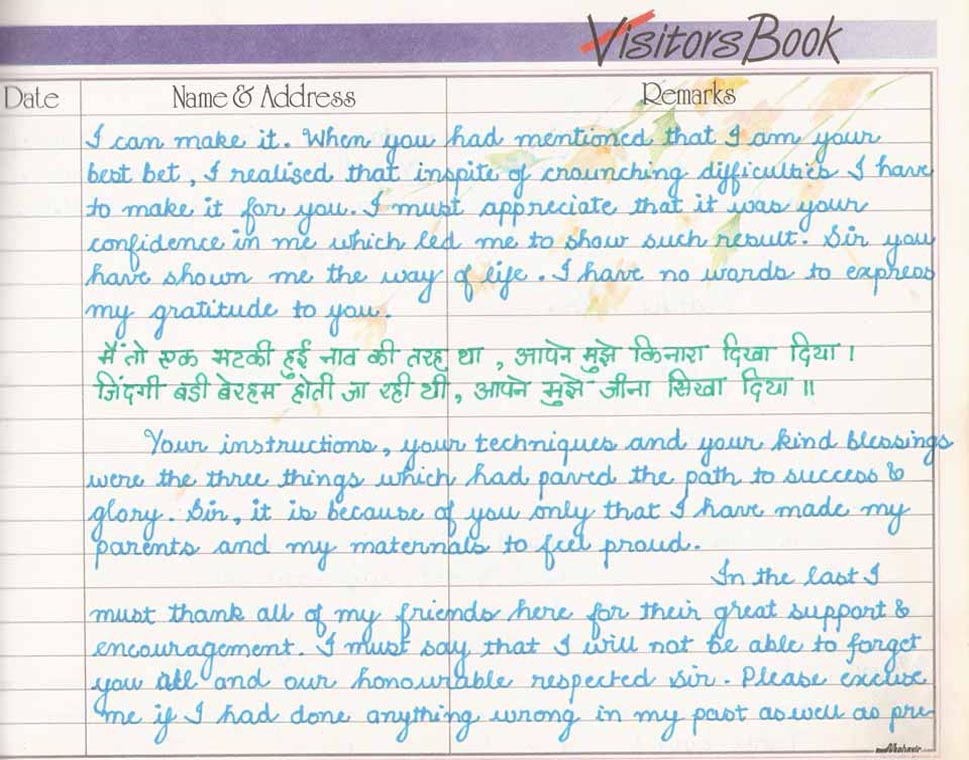 Visitors Book
Date Name & Address Remarks
I can make it. When you had mentioned that I am your
best bet, I realised that inspite of craunching difficulties I have
to make it for you. I must appreciate that it was your
confidence in me which led me to show such result. Sir you
have shown me the way of life. I have no words to express
my gratitude to you.
मैं तो एक भटकी हुई नाव की तरह था, आपने मुझे किनारा दिखा दिया।
जिंदगी बडी बेरहम होती जा रही थी, आपने मुझे जीना सिखा दिया॥
Your instructions, your techniques and your kind blessings
were the three things which had paved the path to success &
glory. Sir, it is because of you only that I have made my
parents and my maternals to feel proud.
In the last I
must thank all of my friends here for their great support &
encouragement. I must say that I will not be able to forget
you all and our honourable respected sir. Please excuse
me if I had done anything wrong in my past as well as pre-